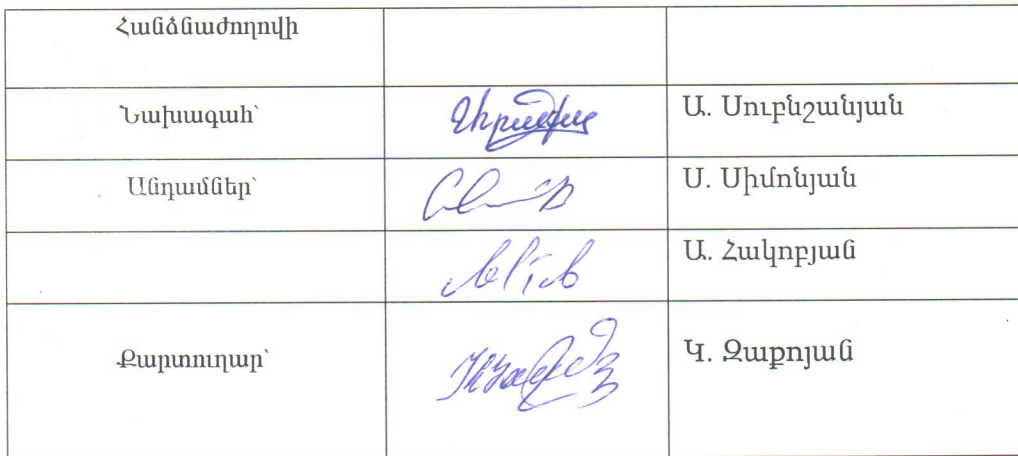 Հանձնաժողովի
Նախագահ՝ Ա. Սուբնշանյան
Անդամներ՝ Ս. Սիմոնյան
Ա. Հակոբյան
Քարտուղար՝ Կ. Զաքոյան